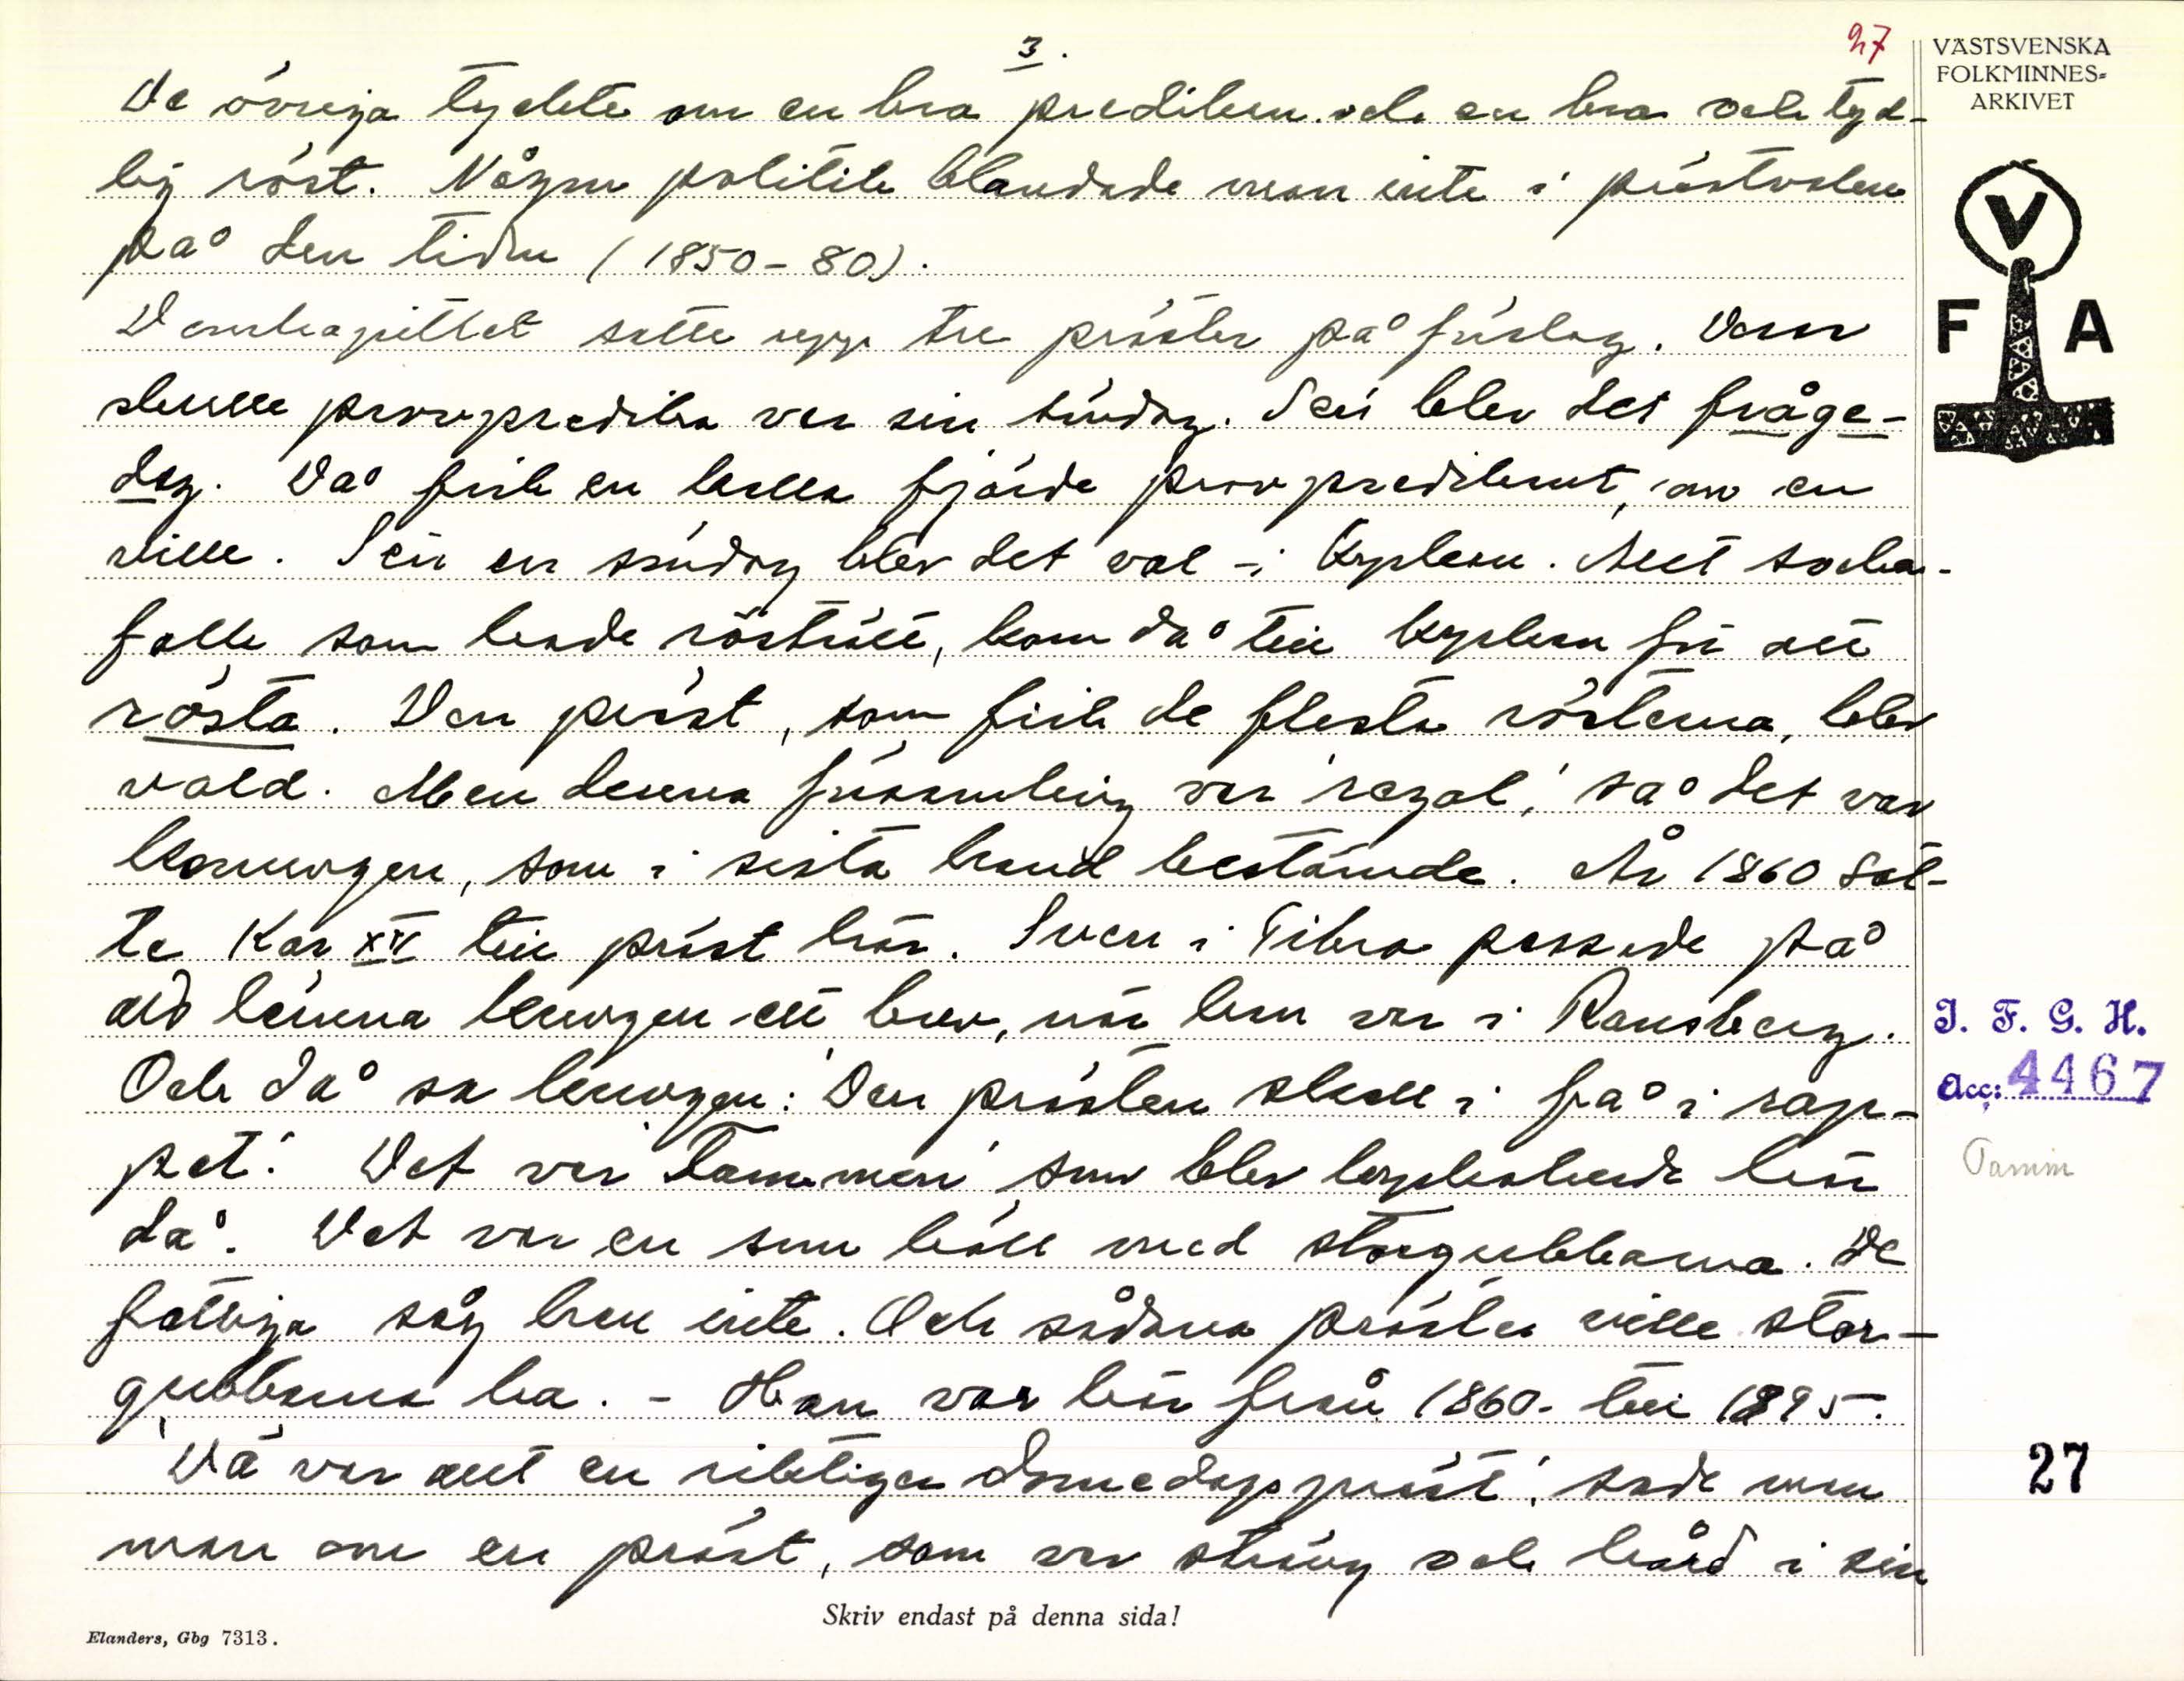 3.
27
De övriga tyckte om en bra predikan och en bra och tyd-
lig röst. Någon politik blandade man inte i prästvalen
på den tiden (1850-80).
Domkapitlet satte upp tre präster på förslag. Dom
skulle provpredika var sin söndag. Sen blev det fråge-
dag. Då fick en kalla fjärde provpredikant, om en
ville. Sen en söndag blev det val i kyrkan. Allt socken-
folk som hade rösträtt, kom då till kyrkan för att
rösta. Den präst, som fick de flesta rösterna, blev
vald. Men denna församling var 'regal', så det var
konungen, som i sista hand bestämde. År 1860 sat-
te Kar XV till präst här. Sven i Tibro passade på
att lämna kungen ett brev, när han var i Ransberg.
Och då sa kungen: Den prästen skall i få i rap-
pet! Det var Tamm som blev kyrkoherde här
då. Det var en som höll med storgubbarna. De
fattiga såg han inte. Och sådana präster ville stor-
gubbarna ha. - Han var här från 1860- till 1895.
'Dä var ett en riktiger domedagspräst', sade man
man om en präst, som var sträng och hård i sin
Skriv endast på denna sida!
Elanders, Gbg 7313.
VÄSTSVENSKA
FOLKMINNES-
ARKIVET
V
F A
I. F. G. H.
Acc: 4467
Tamm
27